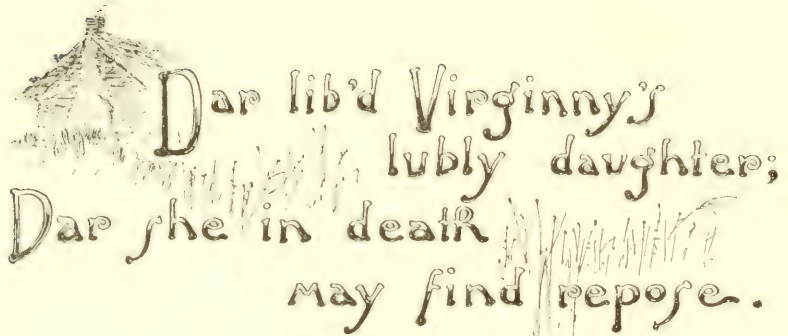 Dar lib'd Virginny's
lubly daughter;
Dar she in death
may find repose.